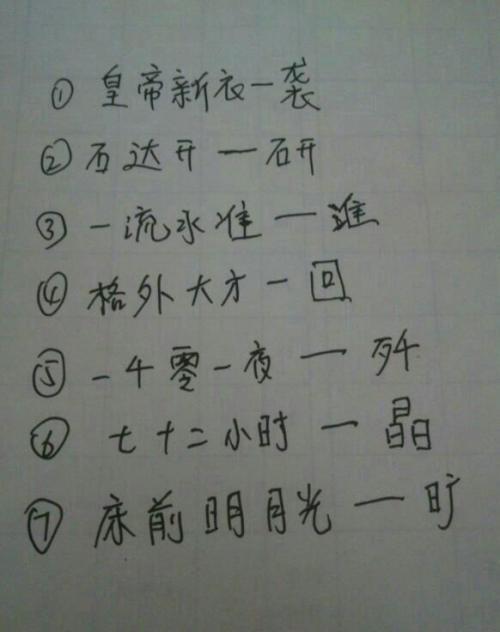 ① 皇帝新衣一袭
② 石达开一研
③ 一流水准一谁
④ 格外大方一回
⑤ 一千零一夜一歼
⑥ 七十二小时一晶
⑦ 床前明月光一旷